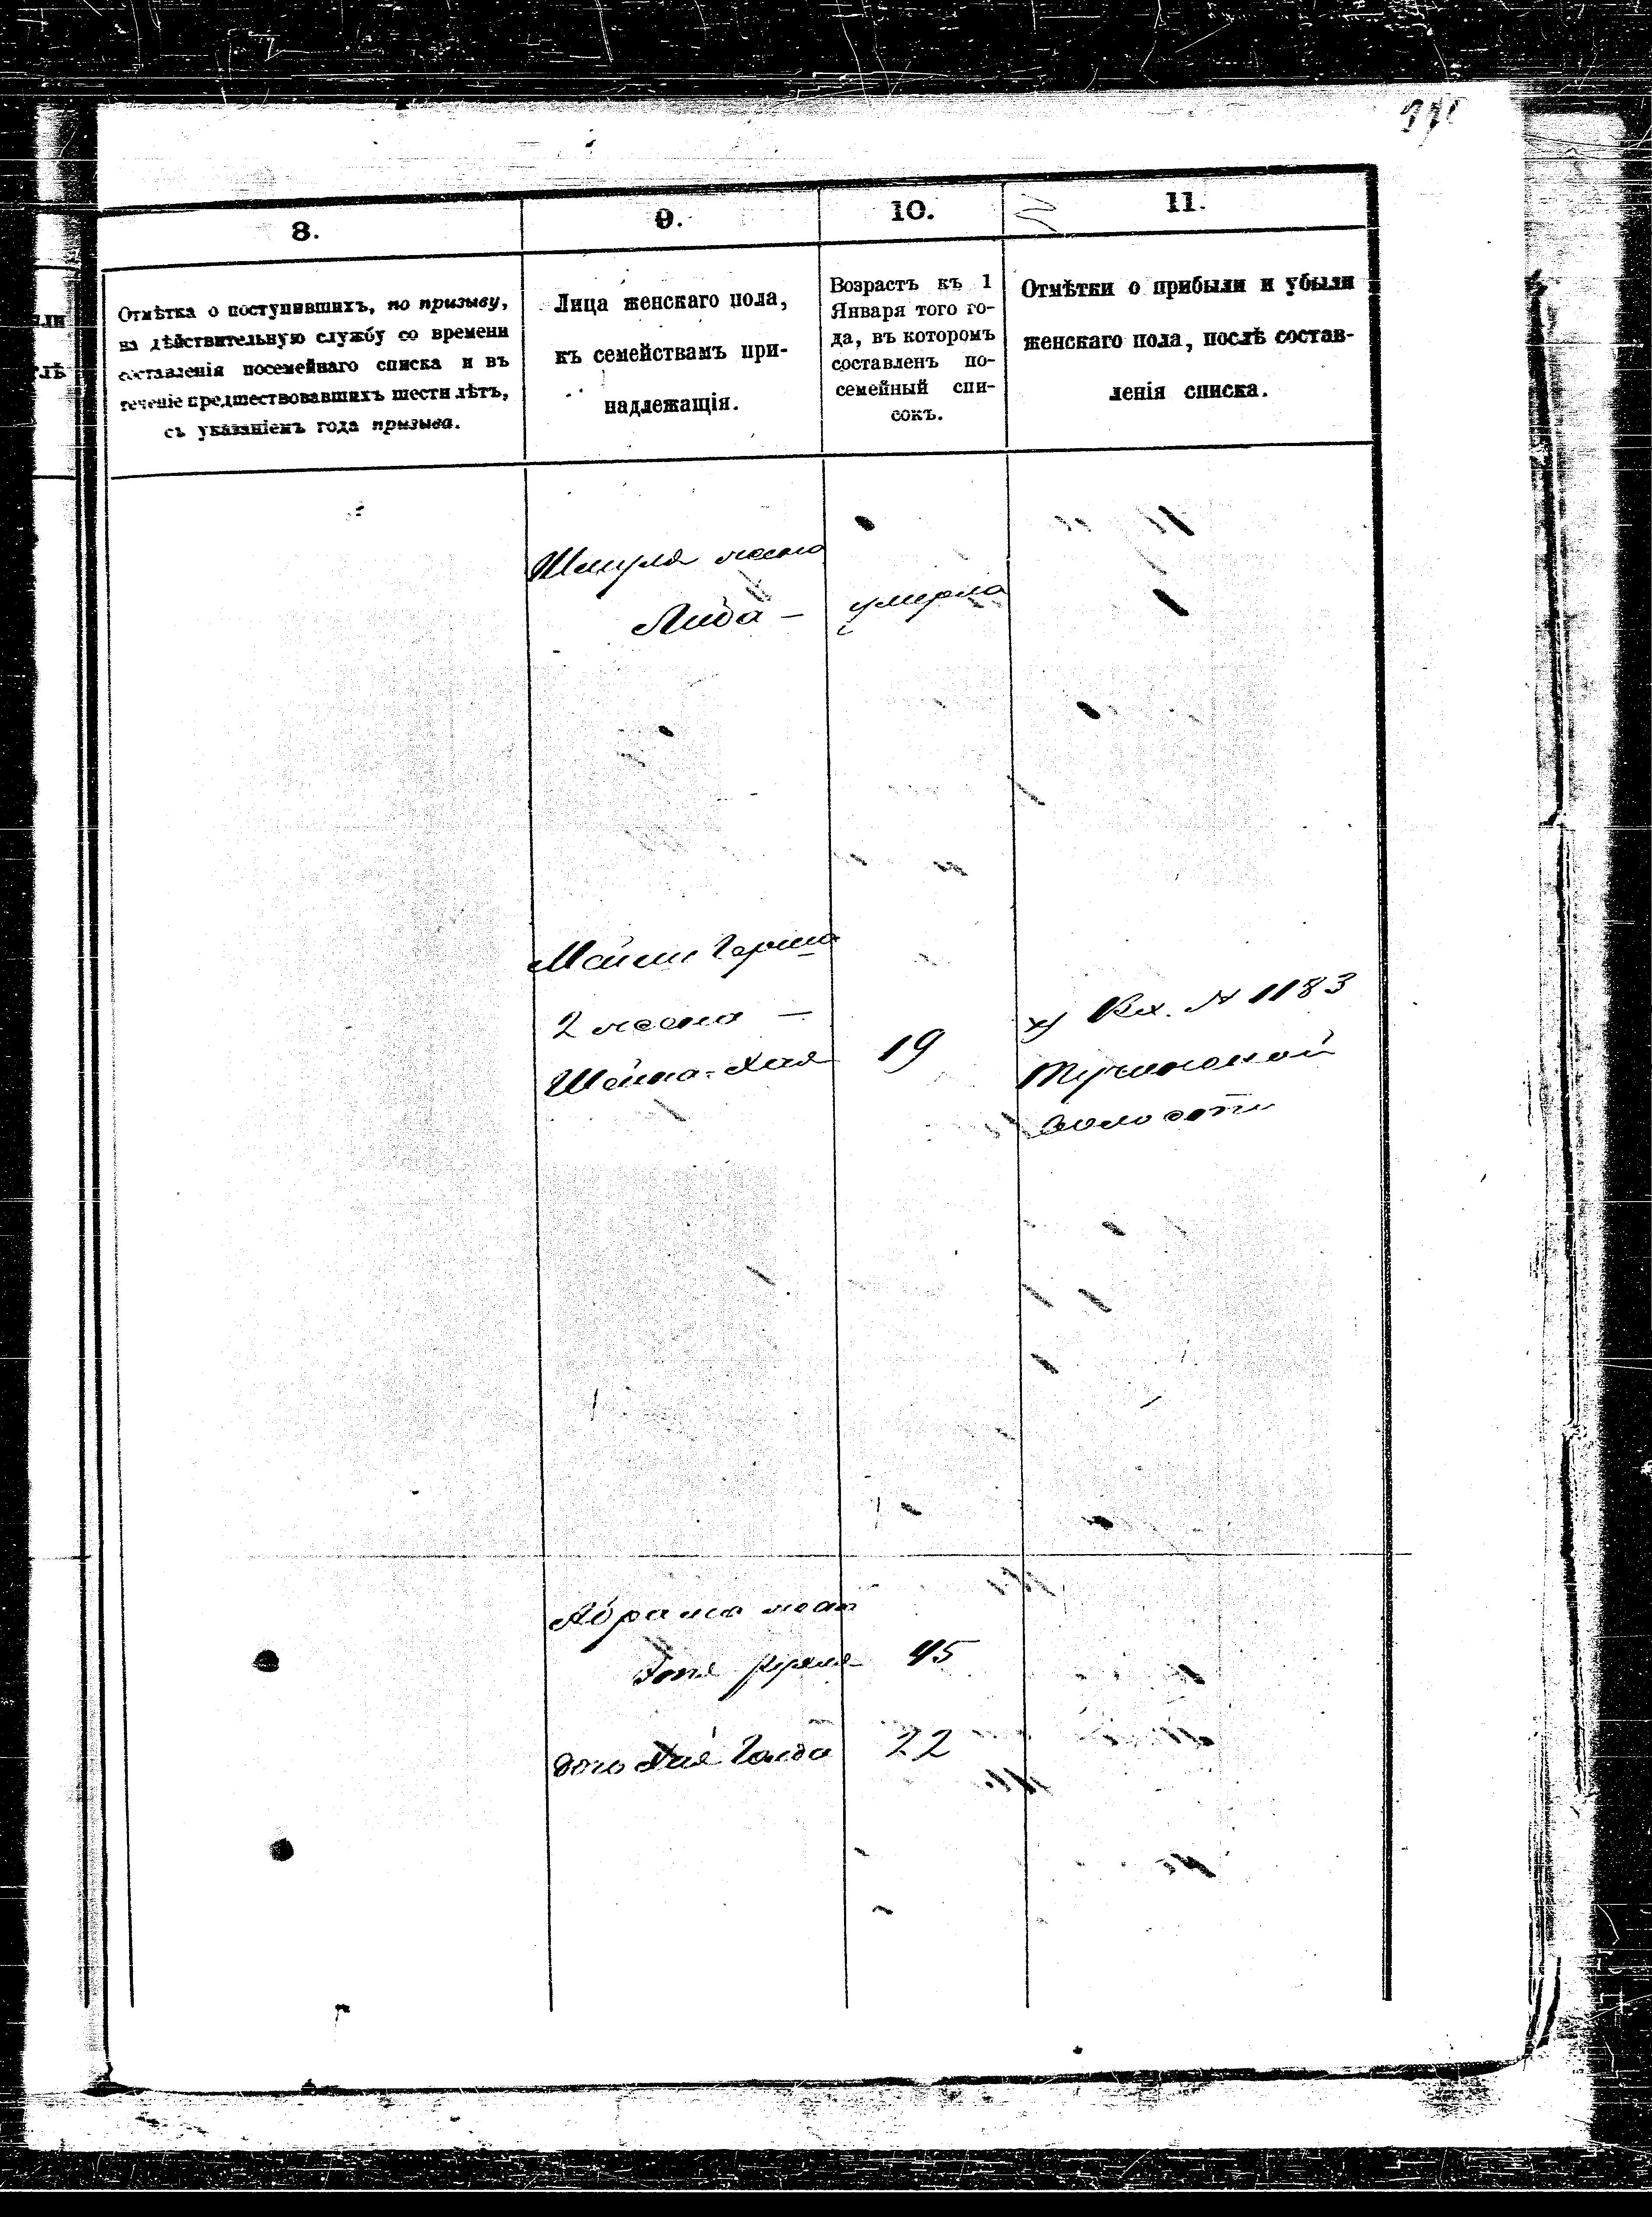 8.
9.
10.
11.
Отмѣтка о поступившихъ, по призыву,
на дѣйствительную службу со времени
составленія посемейнаго списка и въ
теченіе предшествовавшихъ шести лѣтъ,
съ указаніемъ года призыва.
Лица женскаго пола,
къ семействамъ при-
надлежащія.
Возрастъ къ 1
Января того го-
да, въ которомъ
составленъ по-
семейный спи-
сокъ.
Отмѣтки о прибыли и убыли
женскаго пола, послѣ состав-
ленія списка.
Шмуля жена
Либа — умерла
Мойши Герша
2 жена —
Шейна-Хая 19
Вх. № 1183
волости
Абрама
45
дочь Хая Голда 22